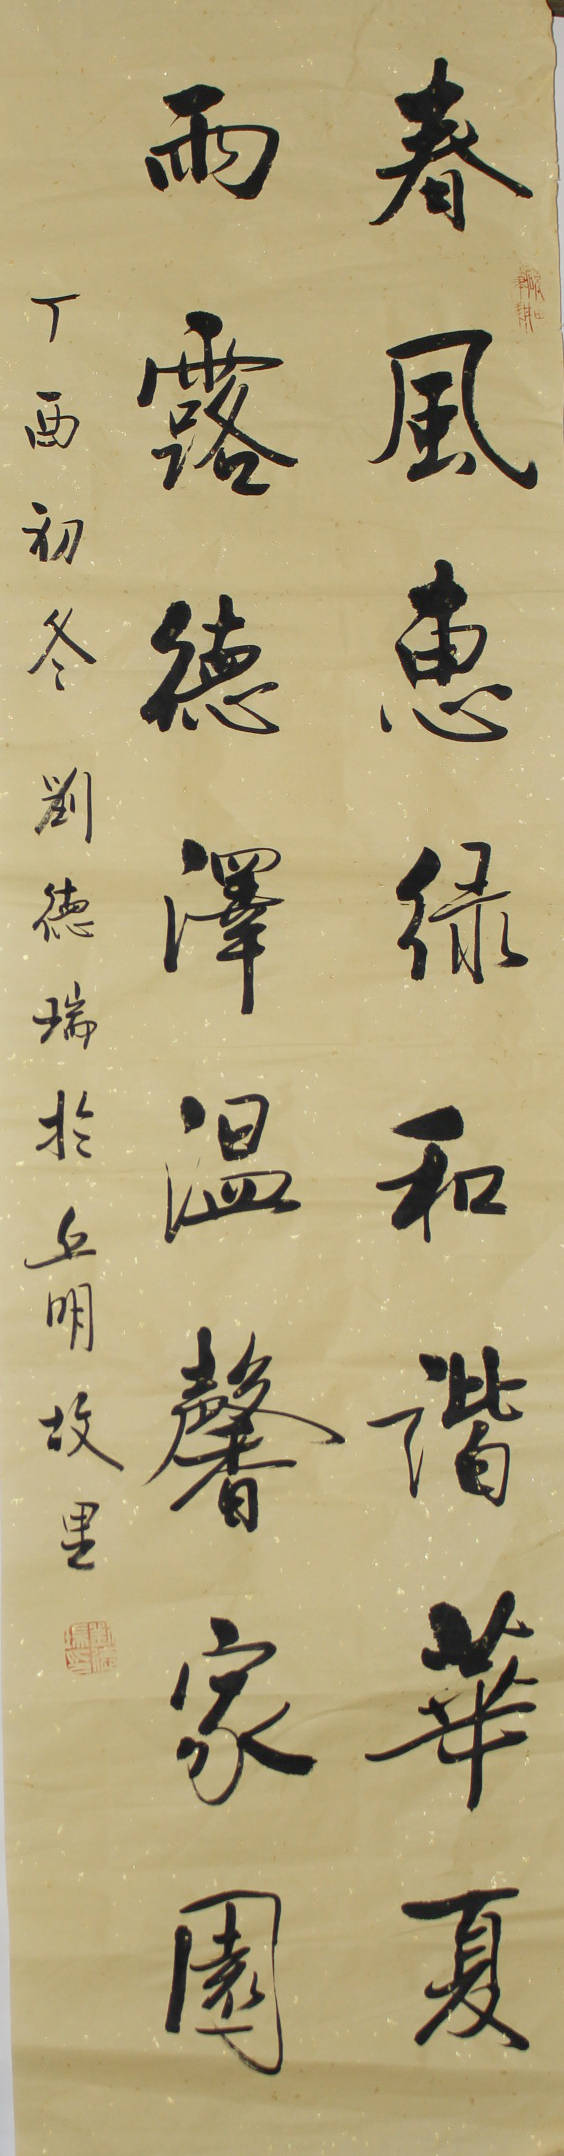 春風惠绿和谐華夏
雨露德澤温馨家園
丁酉初冬 劉德瑞於丘明故里